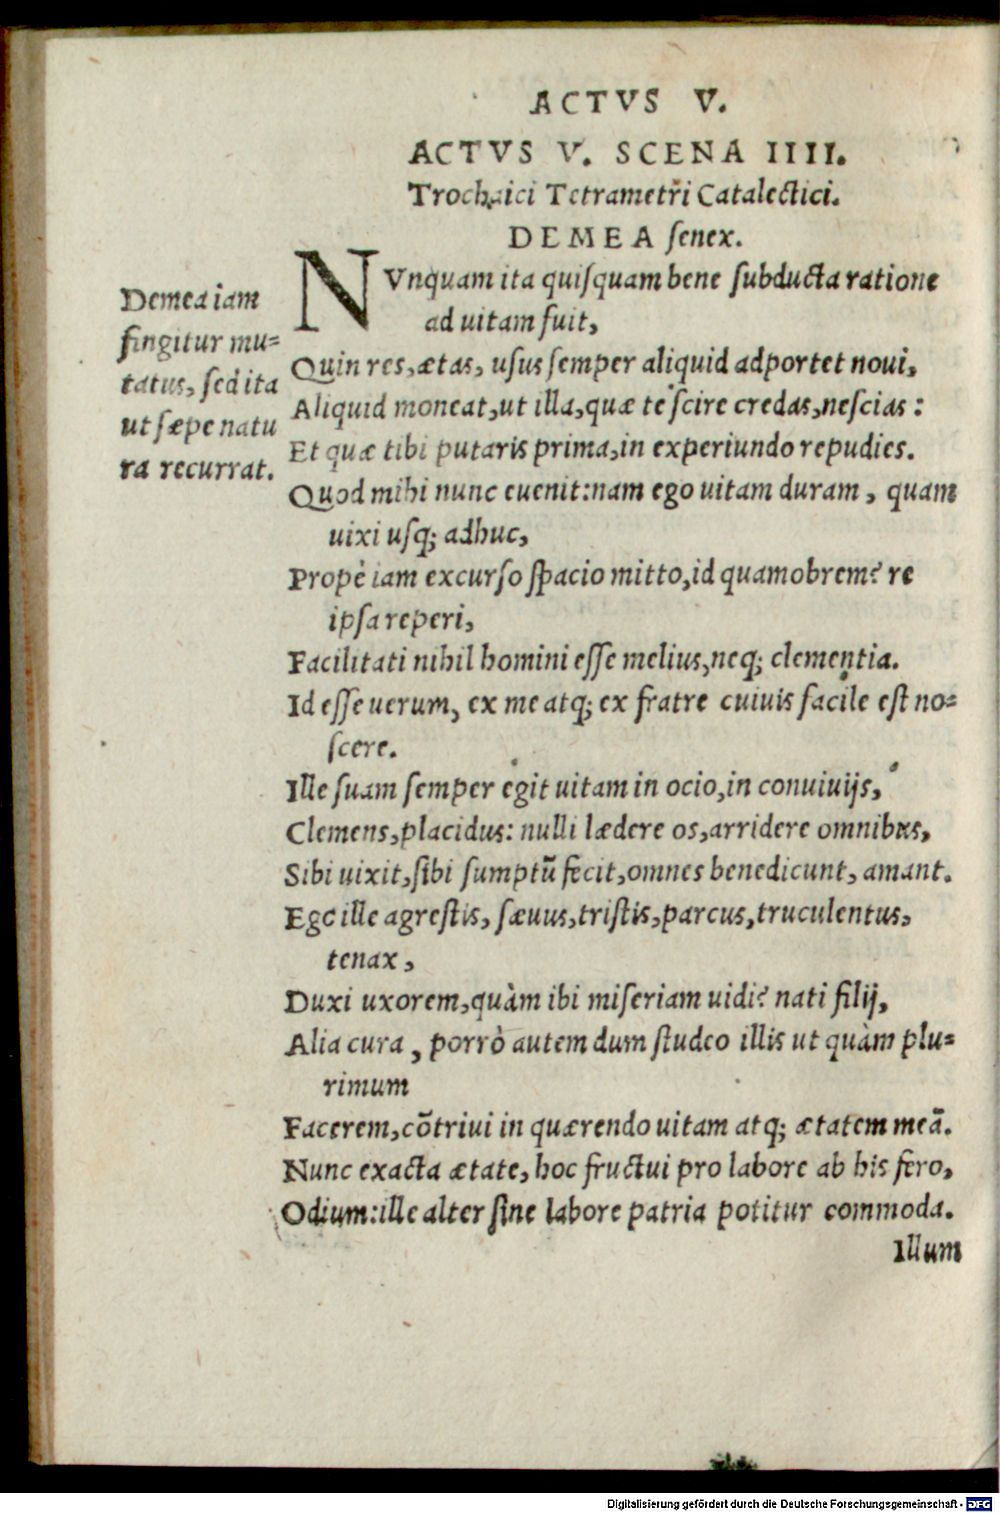 ACTVS V.
ACTVS V. SCENA IIII.
Trochaici Tetrametri Catalectici.
DEMEA ſenex.
Demea iam
fingitur mu=
tatus, ſed ita
ut ſæpe natu
ra recurrat.
NVnquam ita quiſquam bene ſubducta ratione
ad uitam fuit,
Quin res, ætas, uſus ſemper aliquid adportet noui,
Aliquid moneat, ut illa, quæ te ſcire credas, neſcias:
Et quæ tibi putaris prima, in experiundo repudies.
Quod mihi nunc euenit: nam ego uitam duram, quam
uixi uſq; adhuc,
Propè iam excurſo ſpacio mitto, id quamobrem? re
ipſa reperi,
Facilitati nihil homini eſſe melius, neq; clementia.
Id eſſe uerum, ex me atq; ex fratre cuiuis facile eſt no=
ſcere.
Ille ſuam ſemper egit uitam in ocio, in conuiuijs,
Clemens, placidus: nulli lædere os, arridere omnibus,
Sibi uixit, ſibi ſumptū fecit, omnes benedicunt, amant.
Ego ille agreſtis, ſæuus, triſtis, parcus, truculentus,
tenax,
Duxi uxorem, quàm ibi miſeriam uidi? nati filij,
Alia cura, porrò autem dum ſtudeo illis ut quàm plu=
rimum
Facerem, cōtriui in quærendo uitam atq; ætatem meā.
Nunc exacta ætate, hoc fructui pro labore ab his fero,
Odium: ille alter ſine labore patria potitur commoda.
Illum
Digitalisierung gefördert durch die Deutsche Forschungsgemeinschaft - DFG